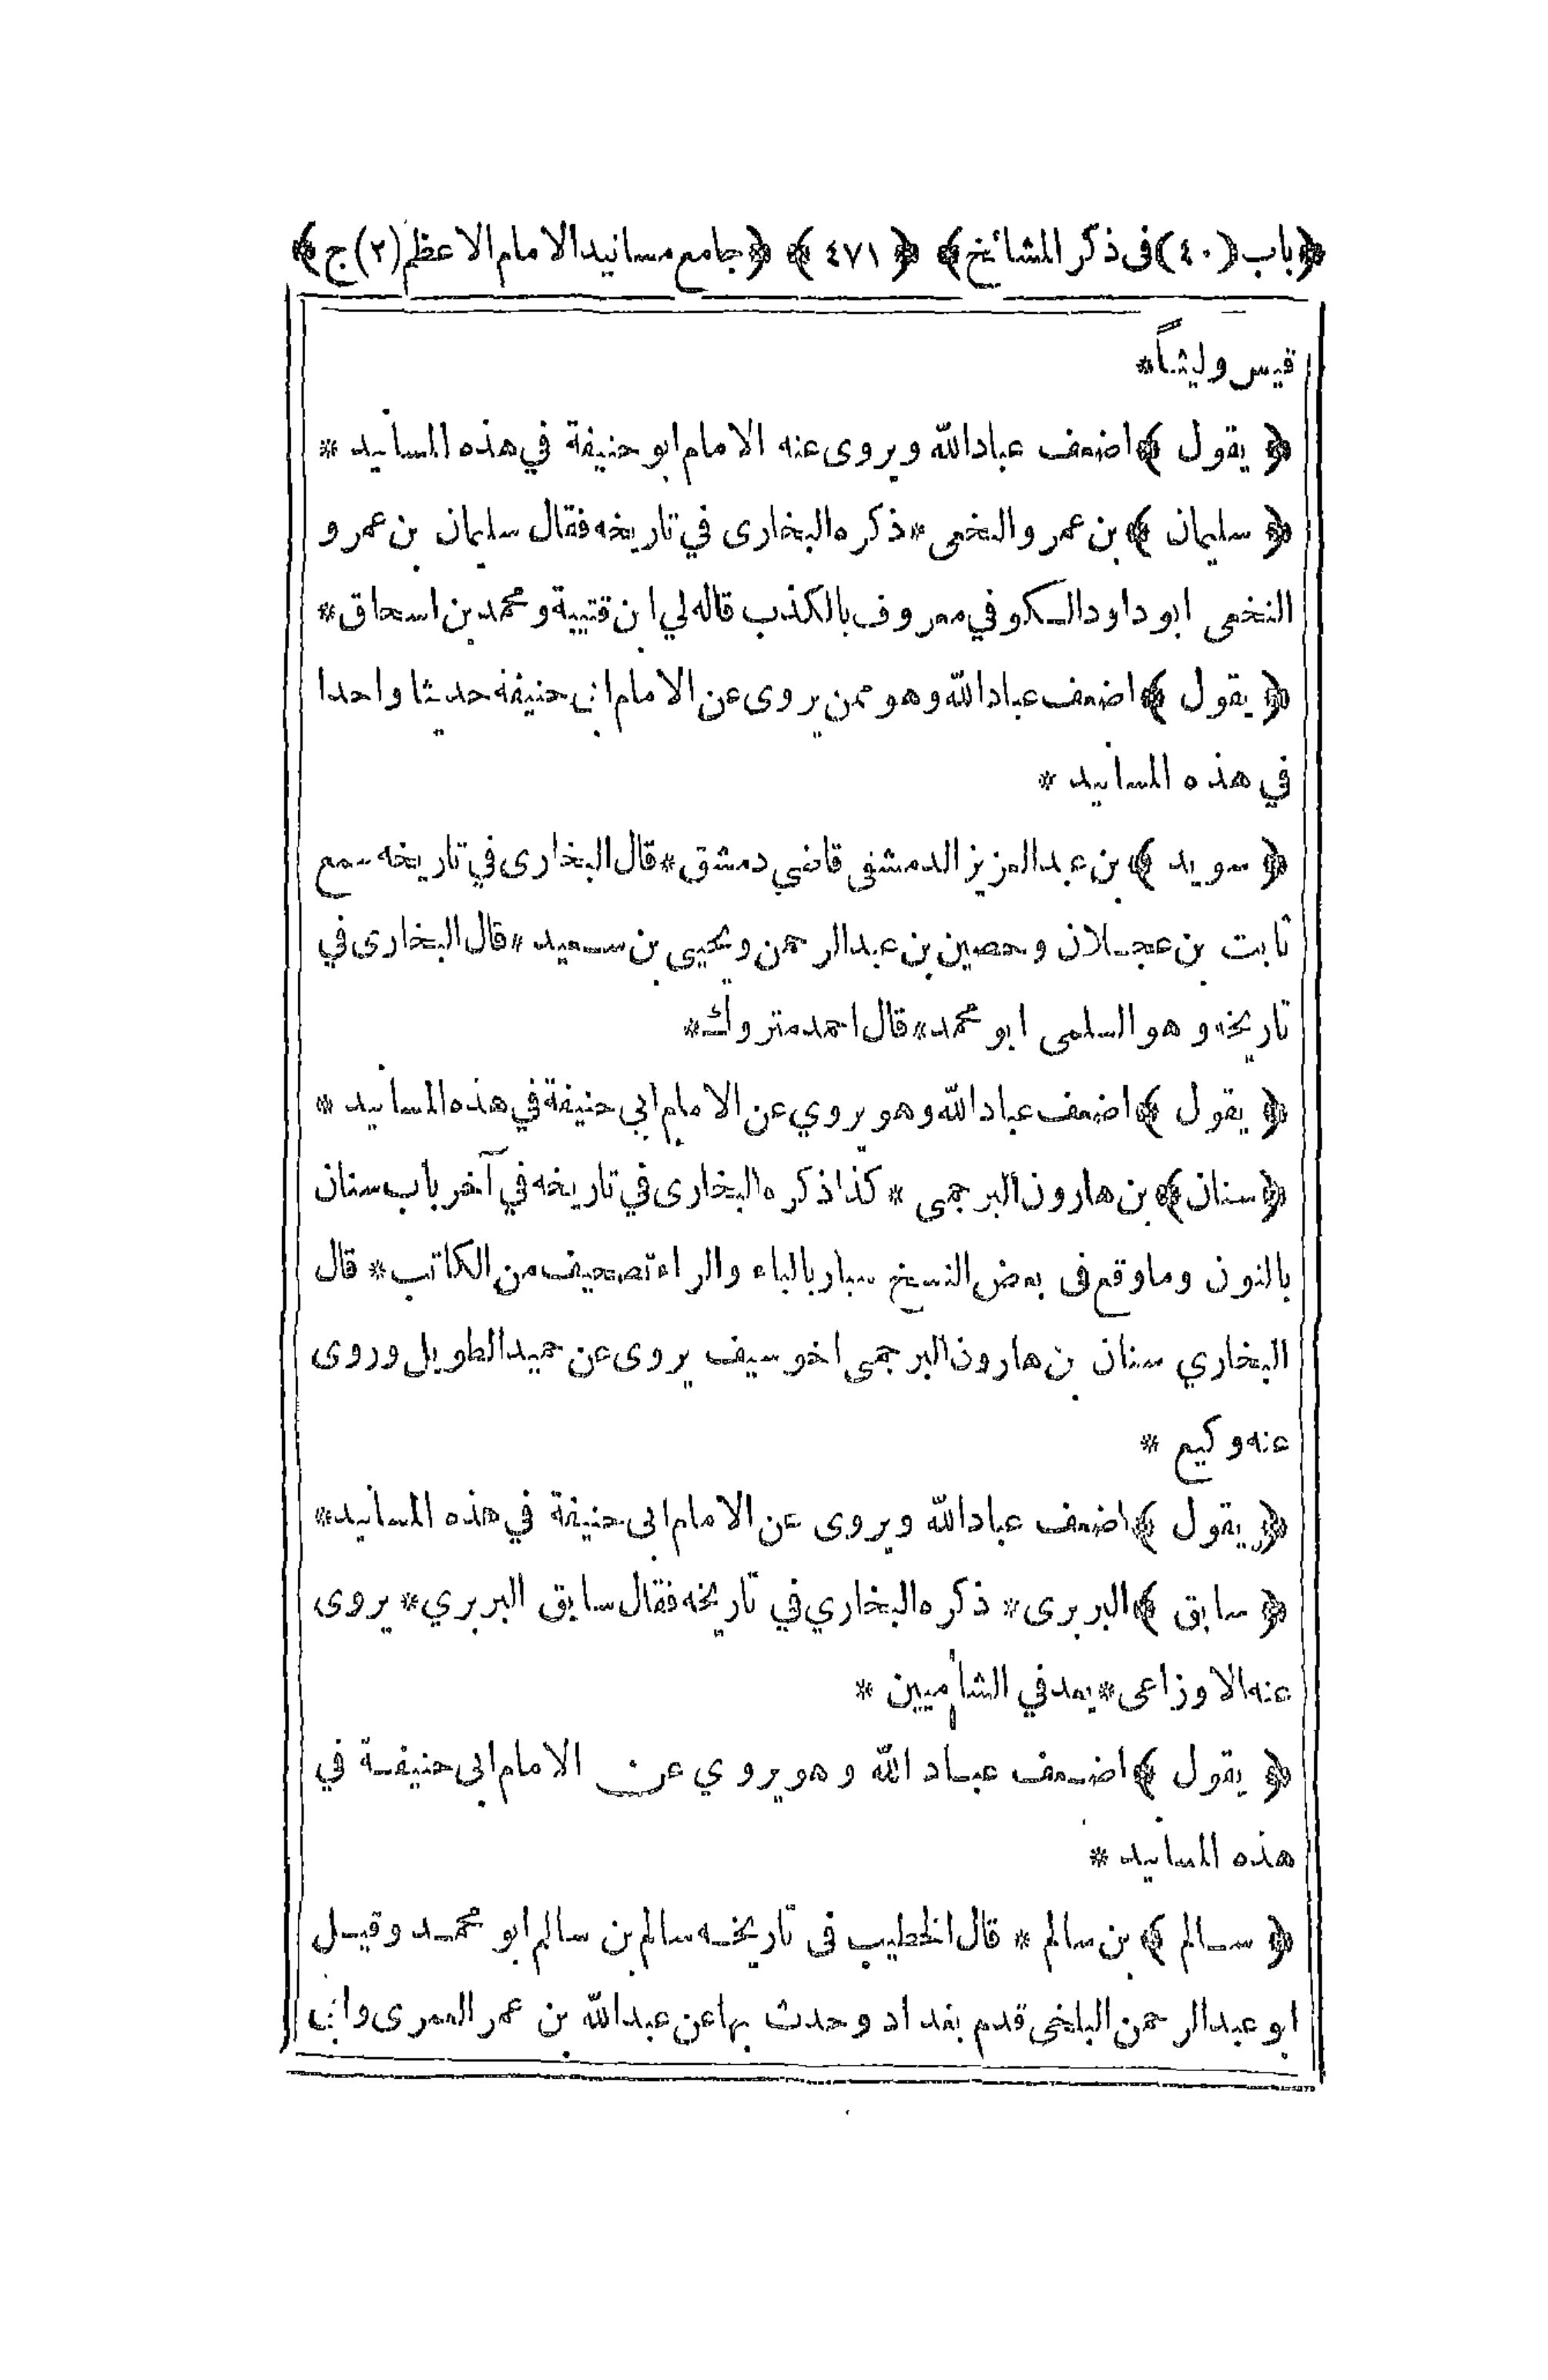 ﴿باب (٤٠) فى ذكر المشائخ﴾ ﴿ ٤٧١ ﴾ ﴿جامع مسانيد الامام الاعظم (٢) ج﴾
قيس وليثاً*
﴿ يقول ﴾ اضعف عباد الله ويروى عنه الامام ابو حنيفة في هذه المسانيد *
﴿ سليمان ﴾ بن عمرو النخعى * ذكره البخارى في تاريخه فقال سليمان بن عمرو
النخعى ابو داود الكوفي معروف بالكذب قاله لي ابن قتيبة ومحمد بن اسحاق*
﴿ يقول ﴾ اضعف عباد الله وهو ممن يروى عن الامام ابى حنيفة حديثا واحدا
في هذه المسانيد *
﴿ سويد ﴾ بن عبد العزيز الدمشقى قاضي دمشق* قال البخارى في تاريخه سمع
ثابت بن عجلان وحصين بن عبد الرحمن ويحيى بن سعيد * قال البخارى في
تاريخه وهو السلمى ابو محمد * قال احمد متروك*
﴿ يقول ﴾ اضعف عباد الله وهو يروي عن الامام ابي حنيفة في هذه المسانيد *
﴿سنان﴾ بن هارون البرجمى * كذا ذكره البخارى في تاريخه في آخر باب سنان
بالنون وما وقع فى بعض النسخ سيار بالياء والراء تصحيف من الكاتب* قال
البخاري سنان بن هارون البرجمى اخو سيف يروى عن حميد الطويل وروى
عنه وكيع *
﴿ يقول ﴾ اضعف عباد الله ويروى عن الامام ابى حنيفة في هذه المسانيد*
﴿ سابق ﴾ البربرى * ذكره البخاري في تاريخه فقال سابق البربري* يروى
عنه الاوزاعى* يعد في الشاميين *
﴿ يقول ﴾ اضعف عباد الله وهو يروي عن الامام ابى حنيفة في
هذه المسانيد *
﴿ سالم ﴾ بن سالم * قال الخطيب فى تاريخه سالم بن سالم ابو محمد وقيل
ابو عبد الرحمن البلخى قدم بغداد وحدث بها عن عبد الله بن عمر العمرى وابى